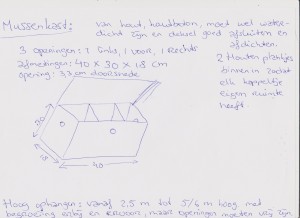 Mussenkast:
van hout, houtboten, moet wel water-
dicht zijn en deksel goed afsluiten en
afdichten.
3 openingen: 1 links, 1 voor, 1 Rechts
afmetingen: 40 x 30 x 18 cm
opening: 3,4 cm doorsnede
2 Houten plankjes
binnen in zodat
elk koppeltje
eigen ruimte
heeft
30
18
40
Hoog ophangen: vanaf 2,5 m tot 5/6 m hoog met
begroeiing erbij en ervoor, maar openingen moeten vrij zijn